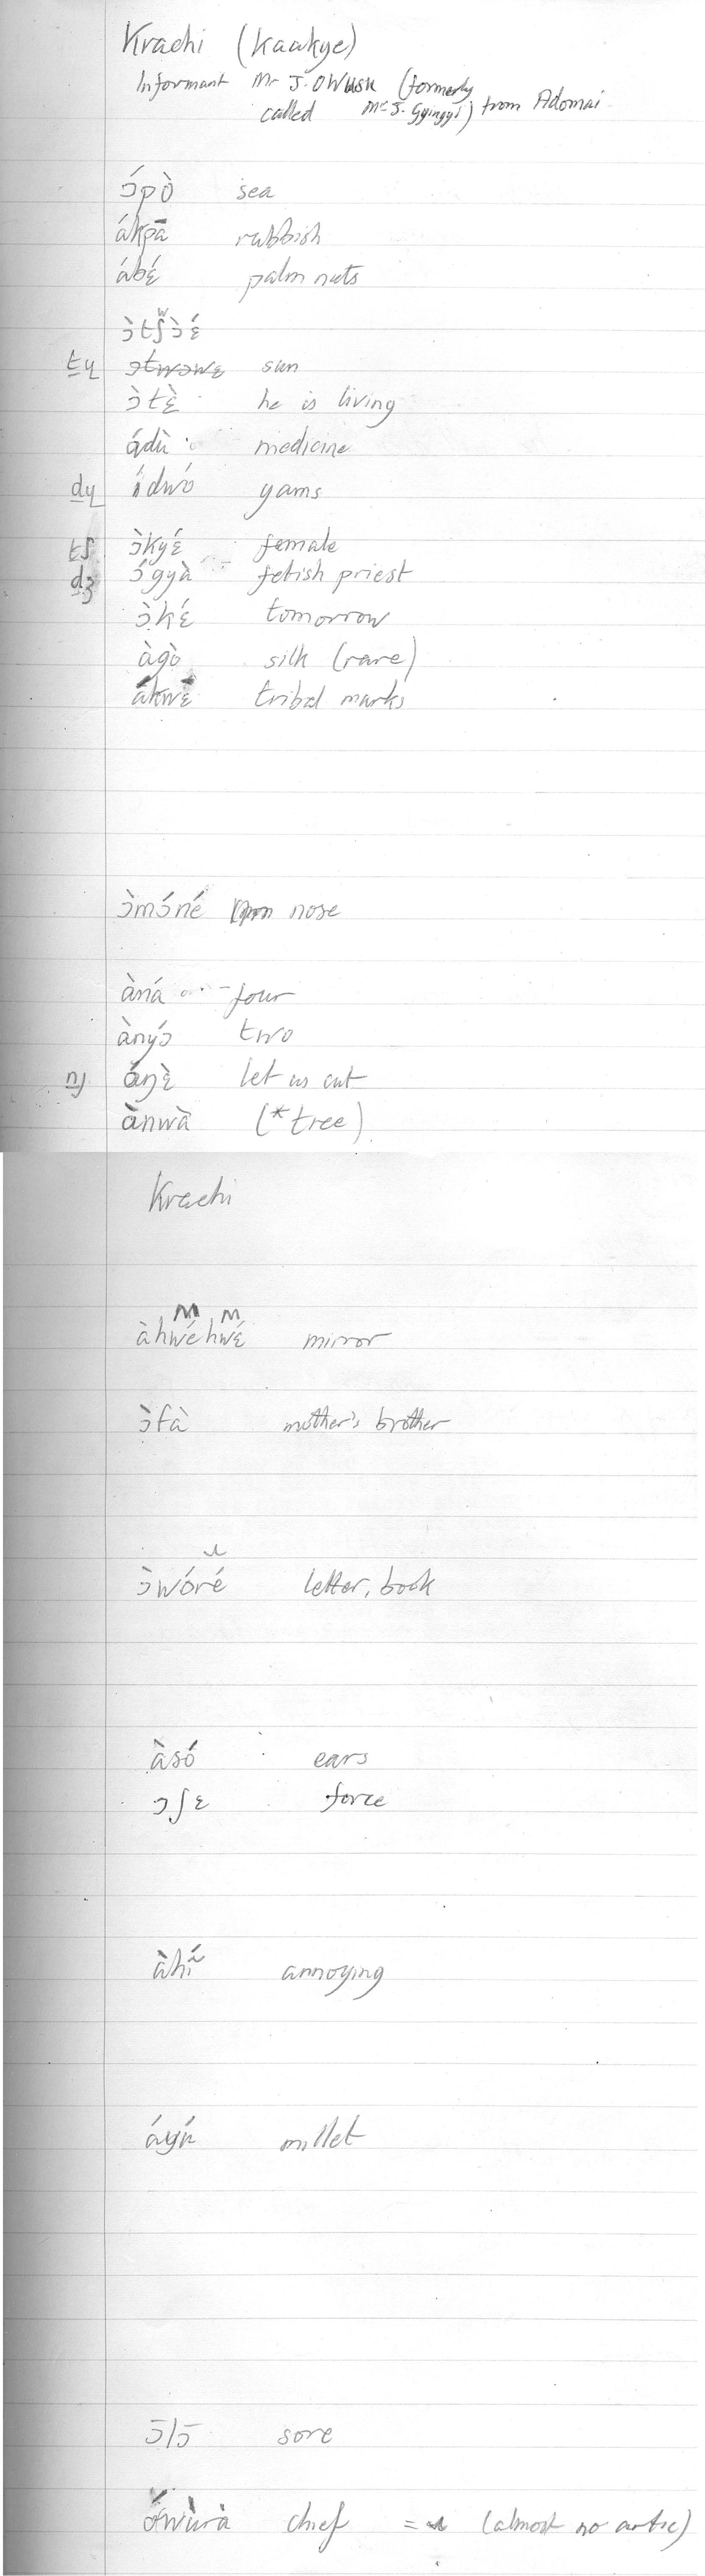 Krachi (Kaakye)
Informant Mr J. Owusu (formerly
called Mr J. Gyingyi) from Adomai
ɔ́pò sea
ákpā rubbish
ábɛ́ palm nuts
ɔ̀tʃʷɔ̀ɛ́
tɥ ɔtwɔwɛ sun
ɔ̀tɛ̀ he is living
ádù medicine
dɥ ídwó yams
tʃ ɔ̀kyɛ́ female
dʒ ɔ́gyà fetish priest
ɔ̀kɛ́ tomorrow
àgò silk (rare)
ákwɛ́ tribal marks
ɔ̀mɔ́né nose
àná four
ànyɔ́ two
ŋj áŋɛ̀ let us cut
ànwà (*tree)
Krachi
àhwɛ́hwɛ́ mirror
ɔ̀fà mother's brother
ɔ̀wóré letter, book
àsó ears
ɔʃɛ force
àhĩ́ annoying
áyú millet
ɔ̄lɔ̄ sore
ówùrà chief = ɹ (almost no artic)